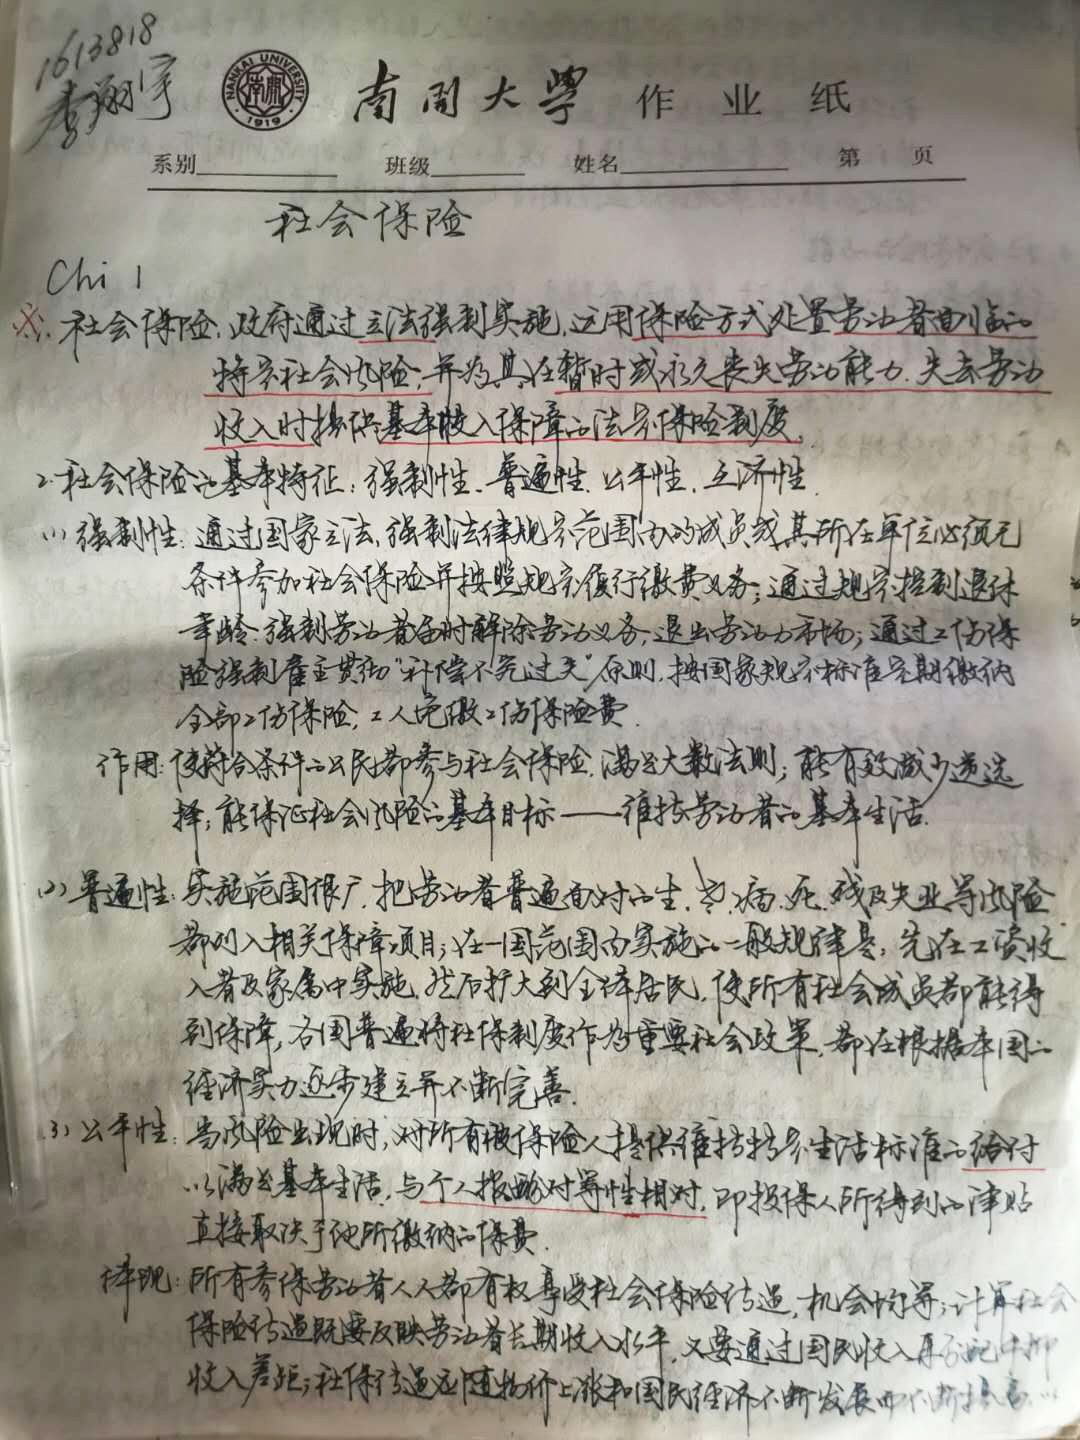 1613818
李翔宇
NANKAI UNIVERSITY
1919
南開大學 作业纸
系别 班级 姓名 第 页
社会保险
Chi 1
※. 社会保险:政府通过立法强制实施,运用保险方式处置劳动者面临的
特定社会风险,并为其在暂时或永久丧失劳动能力、失去劳动
收入时提供基本收入保障的法定保险制度。
2. 社会保险的基本特征:强制性、普遍性、公平性、互济性.
(1) 强制性:通过国家立法,强制法律规定范围内的成员或其所在单位必须无
条件参加社会保险并按照规定履行缴费义务;通过规定控制退休
年龄:强制劳动者届时解除劳动义务,退出劳动力市场;通过工伤保
险强制雇主贯彻“补偿不究过失”原则,按国家规定标准定期缴纳
全部工伤保险,工人免缴工伤保险费.
作用:使符合条件的公民都参与社会保险,满足大数法则;能有效减少逆选
择;能保证社会风险的基本目标——维持劳动者的基本生活.
(2) 普遍性:实施范围很广,把劳动者普遍面对的生、老、病、死、残及失业等风险
都列入相关保障项目;在一国范围内实施的一般规律是:先在工资收
入者及家属中实施,然后扩大到全体居民,使所有社会成员都能得
到保障,各国普遍将社保制度作为重要社会政策,都在根据本国的
经济实力逐步建立并不断完善.
(3) 公平性:当风险出现时,对所有被保险人提供维持特定生活标准的给付
以满足基本生活,与个人报酬对等性相对,即投保人所得到的津贴
直接取决于他所缴纳的保费.
体现:所有参保劳动者人人都有权享受社会保险待遇,机会均等;计算社会
保险待遇既要反映劳动者长期收入水平,又要通过国民收入再分配中抑
收入差距;社保待遇应随物价上涨和国民经济不断发展而不断提高.